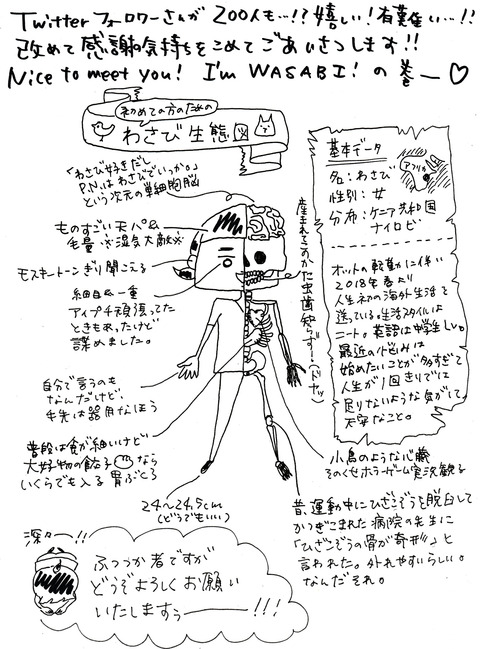 Twitterフォロワーさんが200人も…!?嬉しい!有難い…!!
改めて感謝の気持ちをこめてごあいさつします!!
Nice to meet you! I'm WASABI! の巻ー♡
初めての方のための
わさび生態図
「わさび好きだし
P.N.はわさびでいっか。」
という次元の単細胞脳
ものすごい天パ&
毛量 ※湿気大敵※
モスキートーンぎり聞こえる
細目&一重
アイプチ頑張ってた
ときもあったけど
諦めました。
自分で言うのも
なんだけど
手先は器用なほう
普段は食が細いけど
大好物の餃子なら
いくらでも入る胃ぶくろ
24〜24.5cm
(どうでもいい)
産まれてこのかた虫歯知らず!!(ドヤッ)
基本データ
アフリカ
名:わさび
性別:女
分布:ケニア共和国
ナイロビ
オットの転勤に伴い
2018年春より
人生初の海外生活を
送っている。生活スタイルは
ニート。英語は中学生Lv.
最近の悩みは
始めたいことが多すぎて
人生が1回きりでは
足りないような気がして
不安なこと。
小鳥のような心臓
そのくせホラーゲーム実況観る
昔、運動中にひざこぞうを脱臼して
かつぎこまれた病院の先生に
「ひざこぞうの骨が奇形」と
言われた。外れやすいらしい。
なんだそれ。
深々ー!!
ふつつか者ですが
どうぞよろしくお願い
いたしますぅー!!!